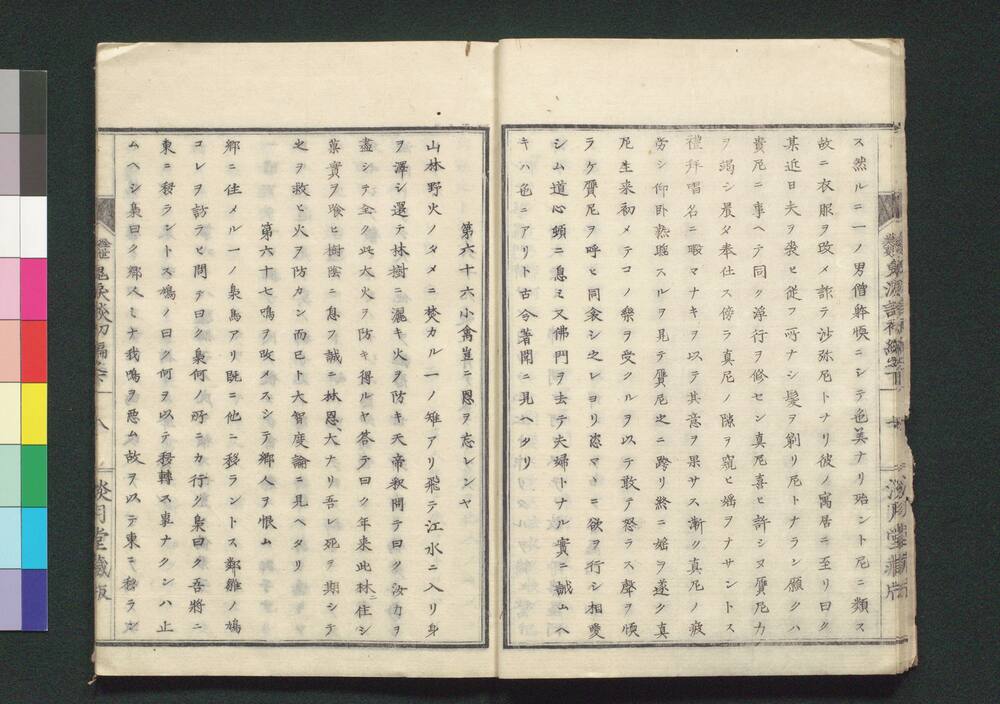 ス然ルニ一ノ男僧軟愞ニシテ色美ナリ殆ント尼ニ類ス
故ニ衣服ヲ改メ詐テ沙弥尼トナリ彼ノ寓居ニ至リ曰ク
某近日夫ヲ喪ヒ従フ所ナシ髪ヲ剃リ尼トナラン願クハ
貴尼ニ事ヘテ同ク浄行ヲ修セン真尼喜ヒ許シヌ贋尼力
ヲ竭シ晨夕奉仕ス傍ラ真尼ノ隙ヲ窺ヒ婬ヲナサントス
禮拜唱名ニ暇マナキヲ以テ其意ヲ果サス漸ク真尼ノ疲
労シ仰卧熟睡スルヲ見テ贋尼之ニ跨リ終ニ婬ヲ遂ク真
尼生来初メテコノ樂ヲ受クルヲ以テ敢テ怒ラス聲ヲ愞
ラケ贋尼ヲ呼ヒ同衾シ之レヨリ恣マヽニ欲ヲ行シ相愛
シム道心頓ニ息ミ又佛門ヲ去テ夫婦トナル實ニ誡ムヘ
キハ色ニアリト古今著聞ニ見ヘタリ
第六十六小禽豈ニ恩ヲ忘レンヤ
山林野火ノタメニ焚カル一ノ雉アリ飛テ江水ニ入リ身
ヲ渾シ還テ林樹ニ灑キ火ヲ防キ天帝釈問テ曰ク汝カヲ
盡シテ全ク此大火ヲ防キ得ルヤ答テ曰ク年来此林ニ住シ
菓實ヲ喰ヒ樹陰ニ息フ誠ニ林恩、大ナリ吾レ死ヲ期シテ
之ヲ救ヒ火ヲ防カン而已ト大智度論ニ見ヘタリ
第六十七鳴ヲ改メスシテ郷人ヲ恨ム
郷ニ住メル一ノ梟鳥アリ既ニ他ニ移ラントス鄰雛ノ鳩
コレヲ訪ラヒ問テ曰ク梟何ノ所ニカ行ク梟曰ク吾將ニ
東ニ移ラントス鳩ノ曰ク何ヲ以テ移轉ス事ナクンハ止
ムヘシ梟曰ク郷人ミナ我鳴ヲ悪ム故ヲ以テ東ニ移ラン